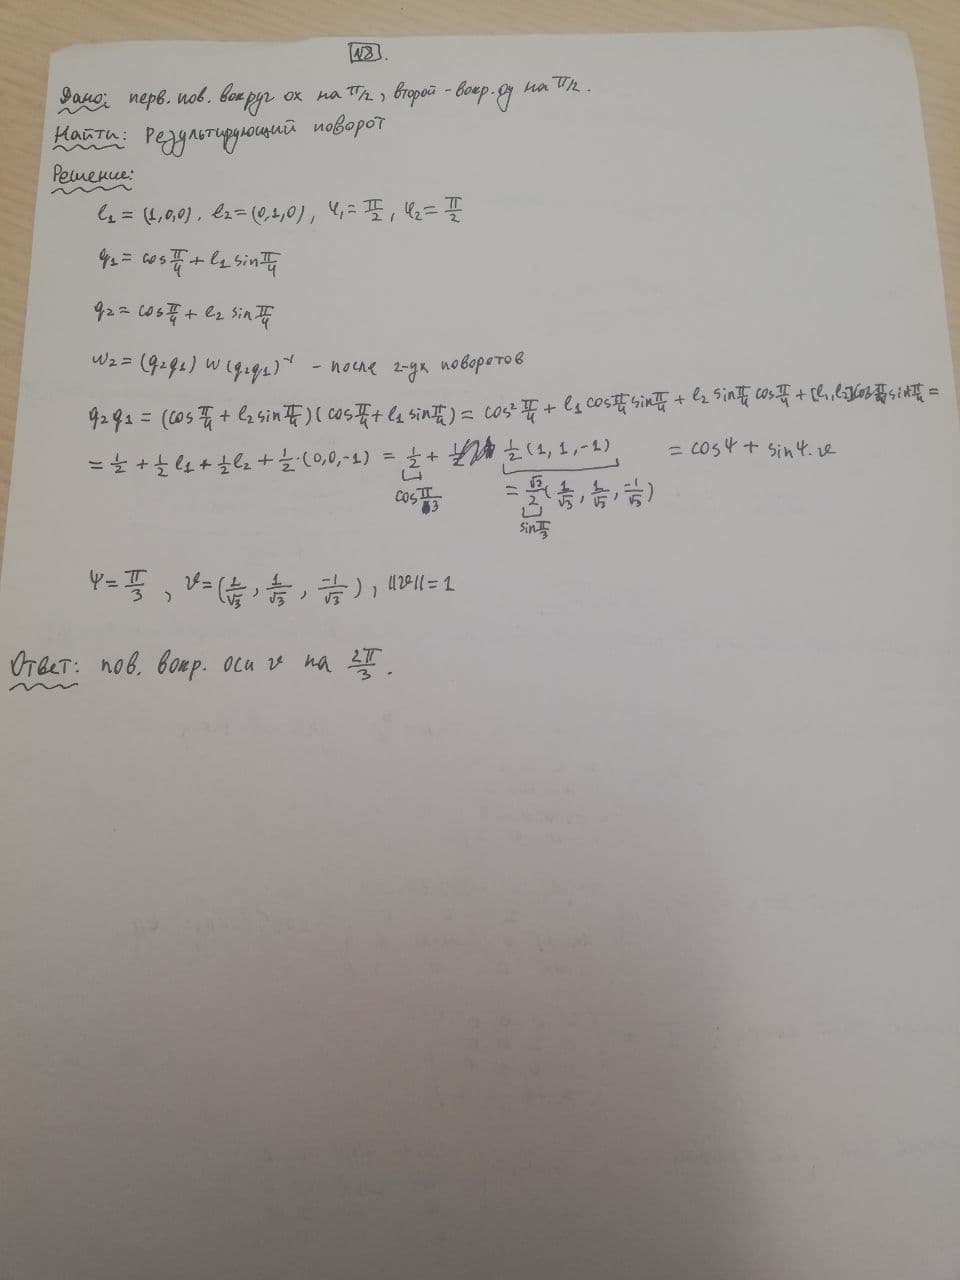 №8.
Дано: перв. пов. вокруг ox на π/2, второй - вокр. oy на π/2.
Найти: Результирующий поворот
Решение:
l₁ = (1,0,0), l₂ = (0,1,0), φ₁ = π/2, φ₂ = π/2
q₁ = cos π/4 + l₁ sin π/4
q₂ = cos π/4 + l₂ sin π/4
w₂ = (q₂q₁) w (q₂q₁)⁻¹ - после 2-ух поворотов
q₂q₁ = (cos π/4 + l₂ sin π/4)(cos π/4 + l₁ sin π/4) = cos² π/4 + l₁ cos π/4 sin π/4 + l₂ sin π/4 cos π/4 + [l₁, l₂] sin π/4 =
= 1/2 + 1/2 l₁ + 1/2 l₂ + 1/2·(0,0,-1) = 1/2 + 1/2 (1, 1, -1) = cos ψ + sin ψ·v
cos π/3 = √3/2 (1/√3, 1/√3, -1/√3)
sin π/3
ψ = π/3, v = (1/√3, 1/√3, -1/√3), ||v|| = 1
Ответ: пов. вокр. оси v на 2π/3.